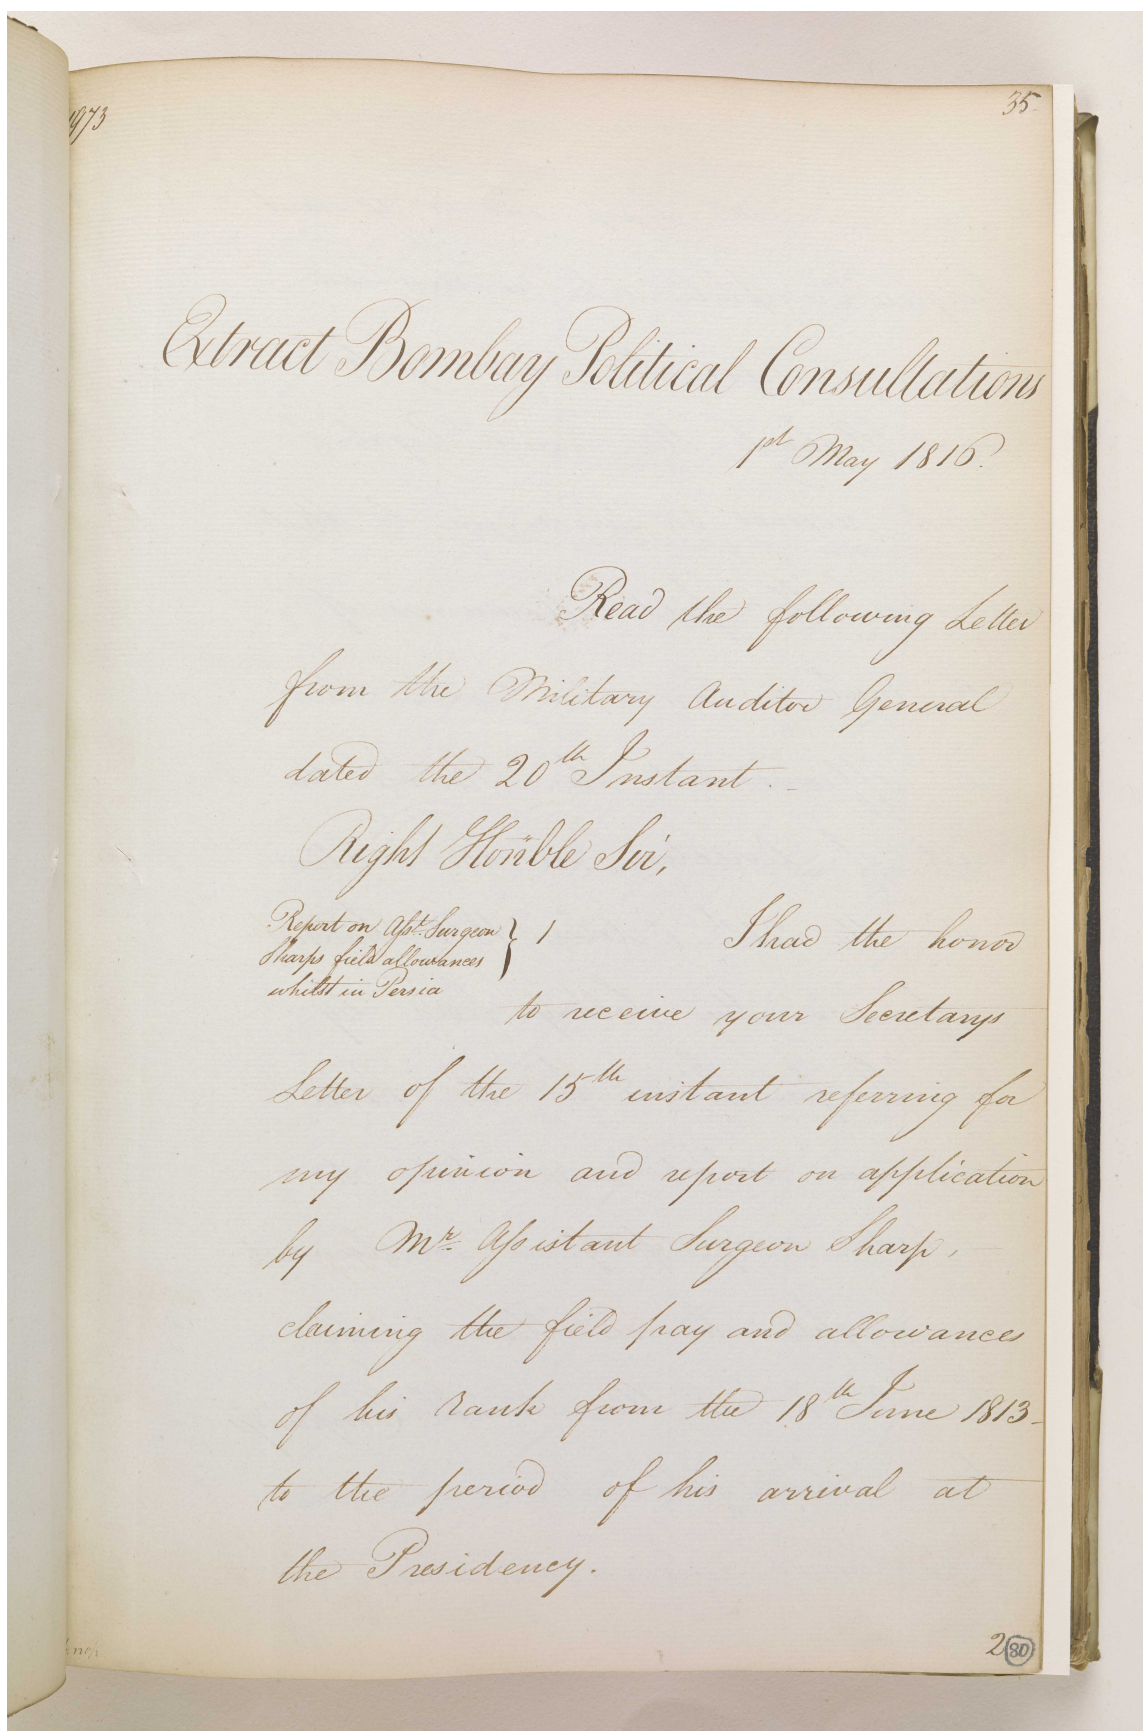 1973
35
Extract Bombay Political Consultations
1st May 1816.
Read the following Letter
from the Military Auditor General
dated the 20th Instant.
Right Honble Sir,
Report on Asst. Surgeon
Sharps field allowances
whilst in Persia
1 I had the honor
to receive your Secretarys
Letter of the 15th instant referring for
my opinion and report on application
by Mr. Assistant Surgeon Sharp,
claiming the field pay and allowances
of his rank from the 18th June 1813
to the period of his arrival at
the Presidency.
2
80